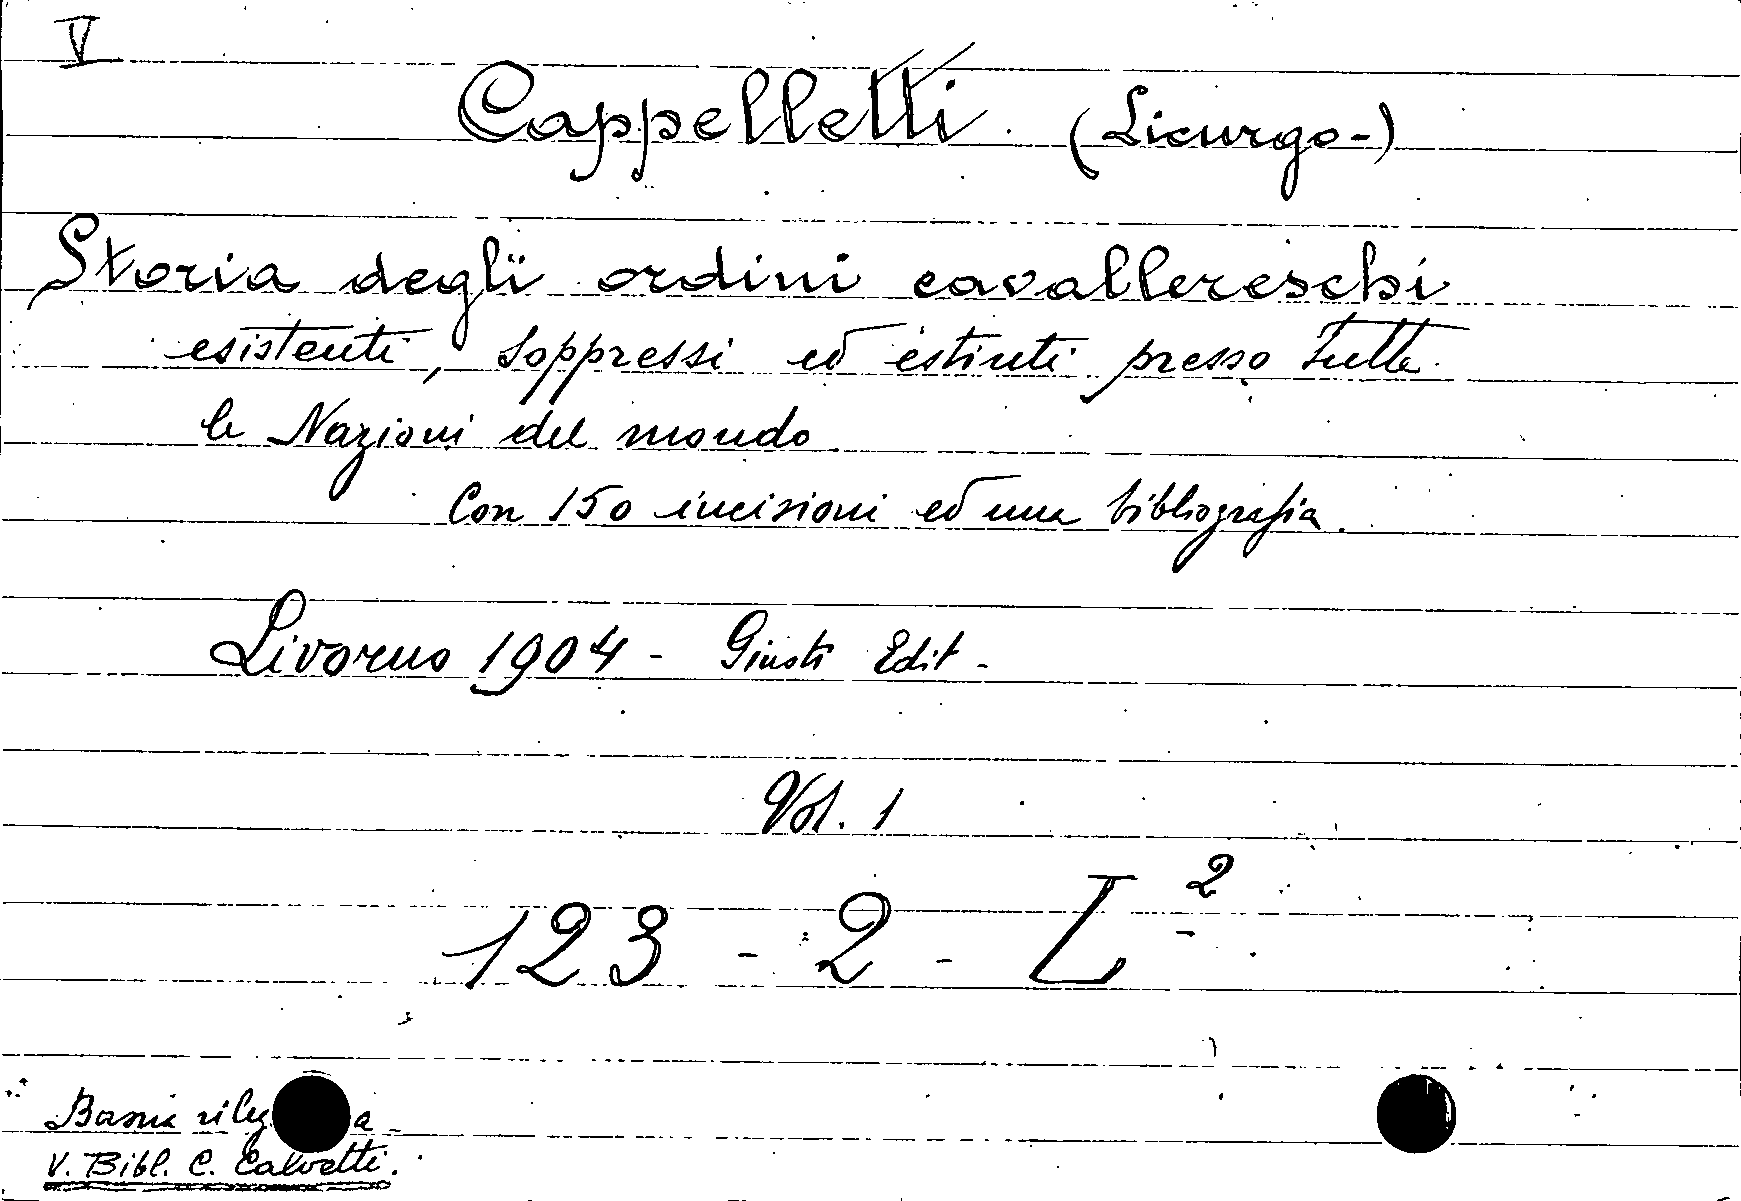 V
Cappelletti (Licurgo-)
Storia degli ordini cavallereschi
esistenti, soppressi ed estinti presso tutte
le Nazioni del mondo
Con 150 incisioni ed una bibliografia.
Livorno 1904 - Giusti Edit -
Vol. 1
123 - 2 - L 2
V. Bibl. C. Calvetti.